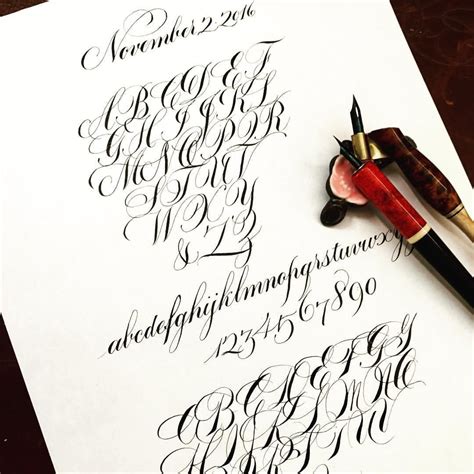 November 2, 2016
A B C D E F
G H I J K L
M N O P Q R
S T U V
W X Y
& Z Z
abcdefghijklmnopqrstuvwxy
1234567890
A B C D E F G